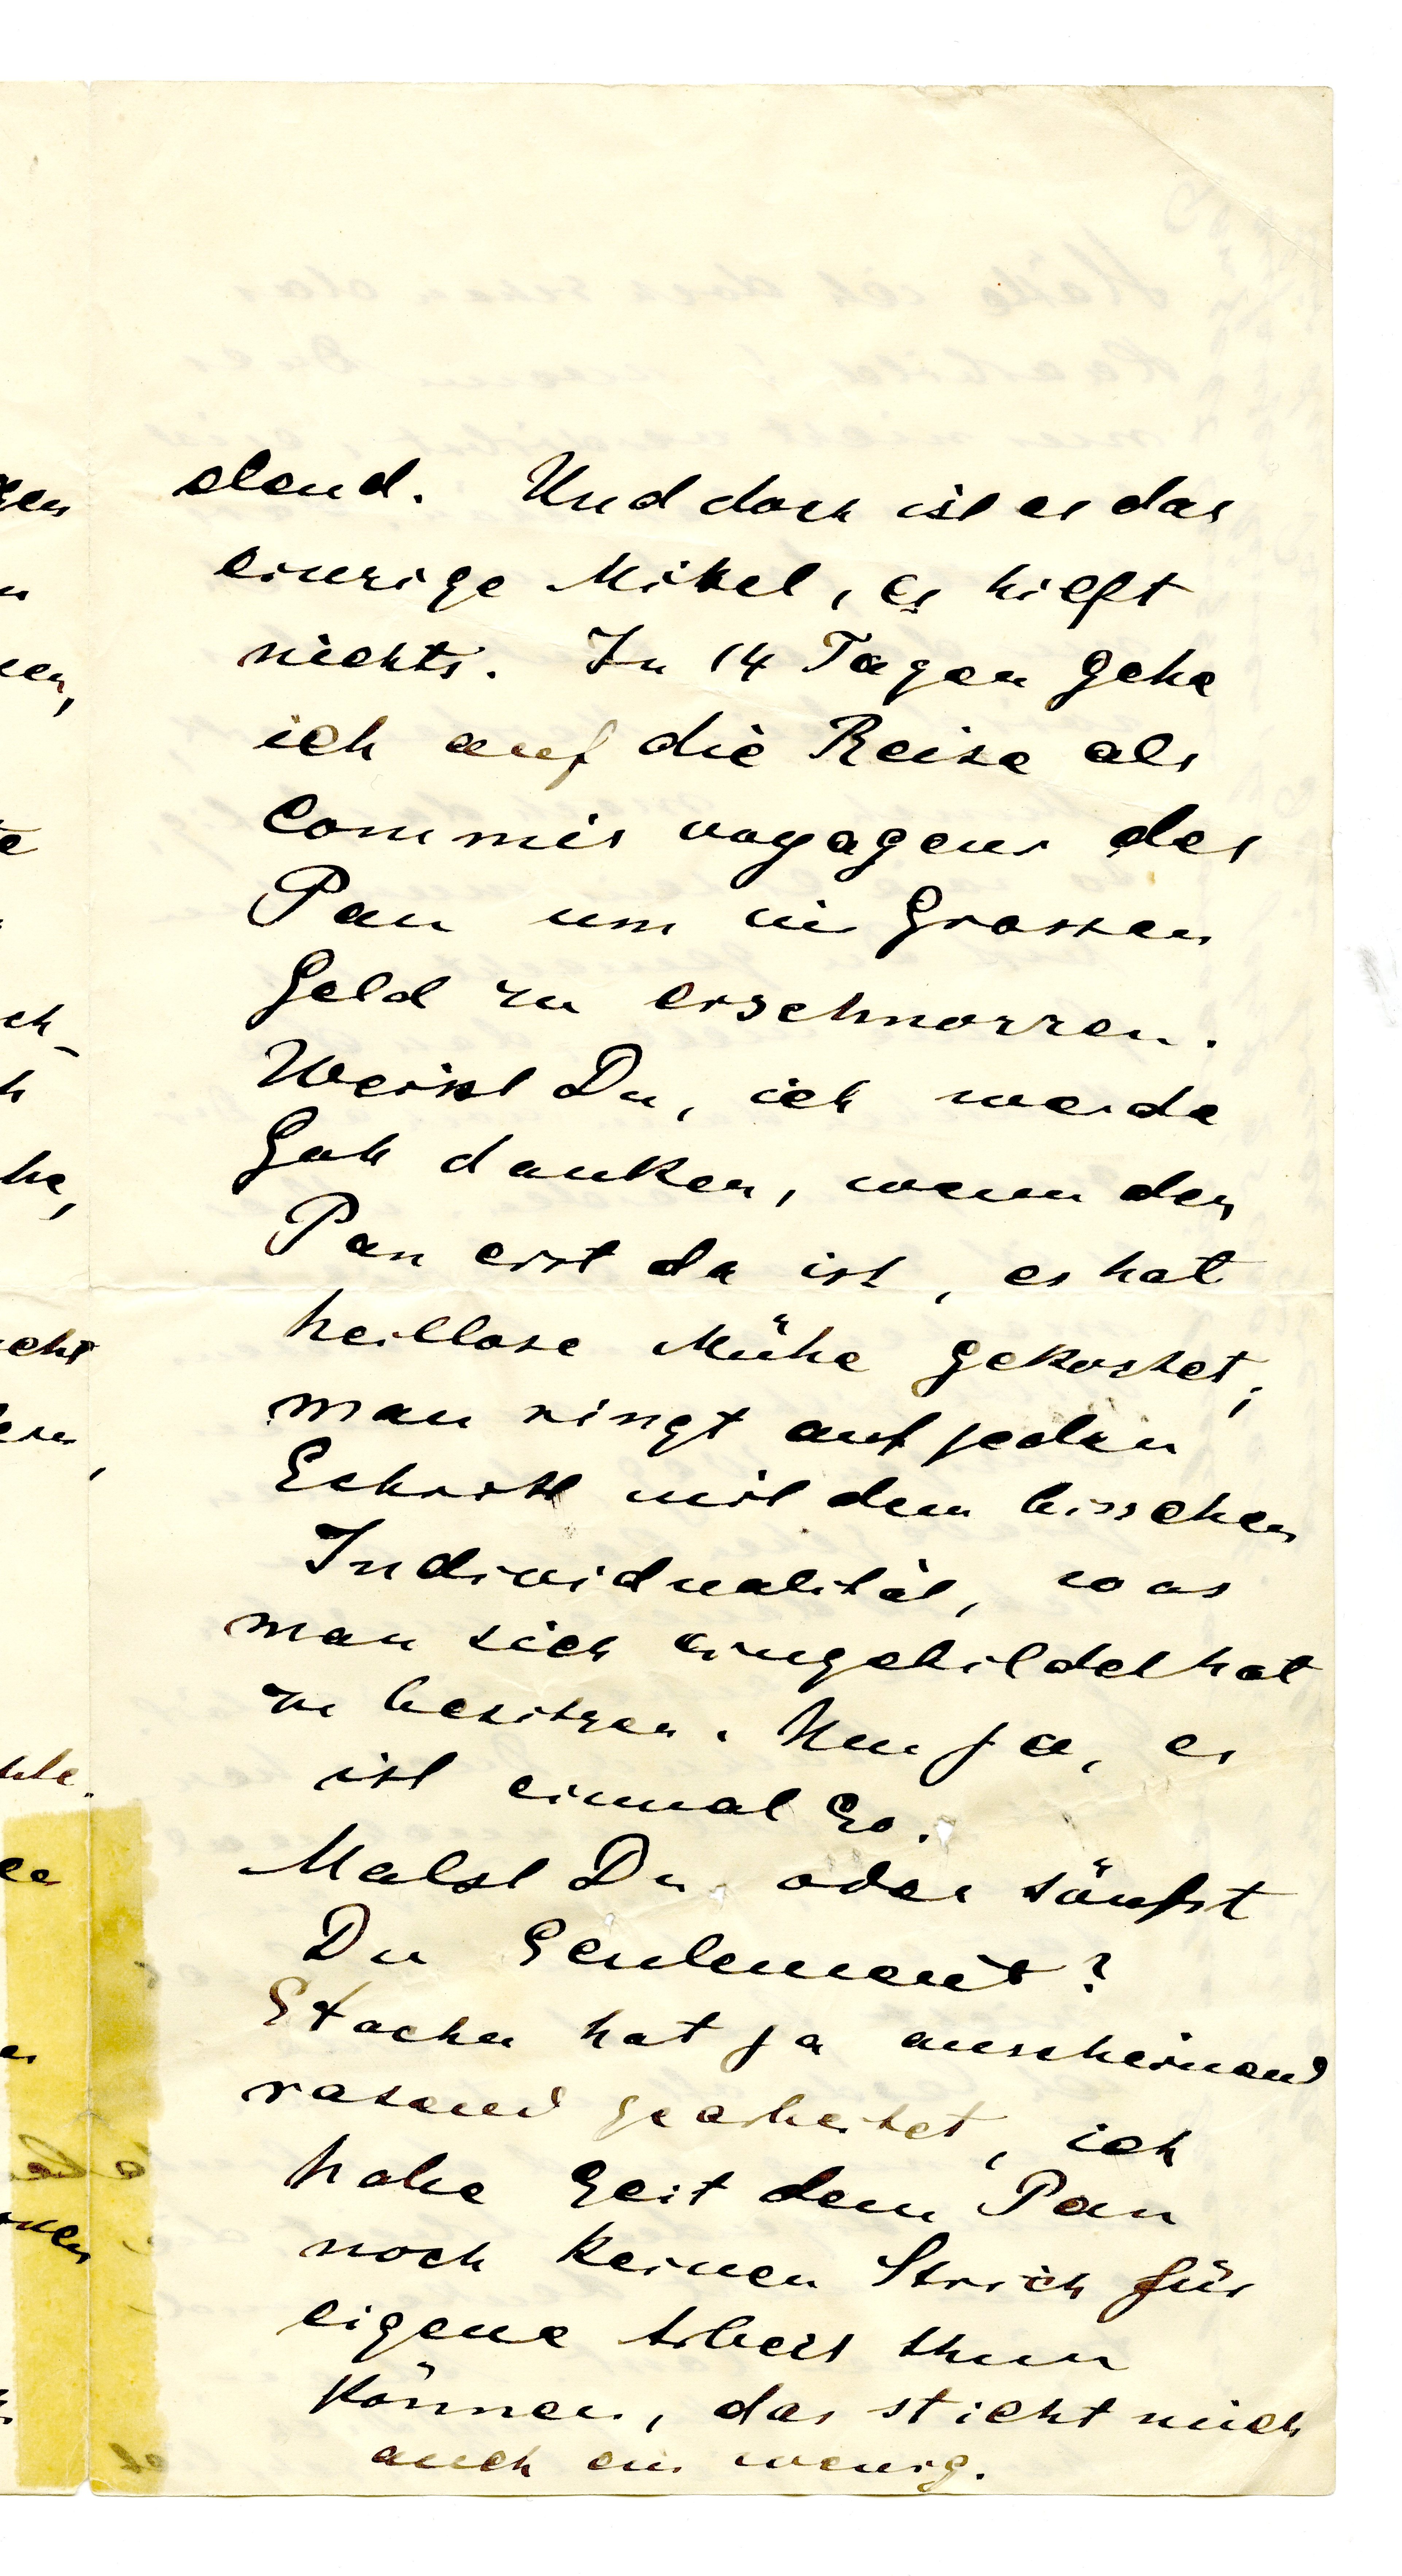 elend. Und doch ist es das
einzige Mittel, es hilft
nichts. In 14 Tagen gehe
ich auf die Reise als
Commis voyageur des
Pan um im Grossen
Geld zu erschnorren.
Weisst Du, ich werde
Gott danken, wenn der
Pan erst da ist, es hat
heillose Mühe gekostet,
man ringt auf jeden
Schritt mit dem bisschen
Individualität, was
man sich eingebildet hat
zu besitzen. Nun ja, es
ist einmal so.
Malst Du oder säufst
Du seulement?
Stachu hat ja anscheinend
rasend gearbeitet, ich
habe seit dem Pan
noch keinen Strich für
eigene Arbeit thun
können, das sticht mich
auch ein wenig.